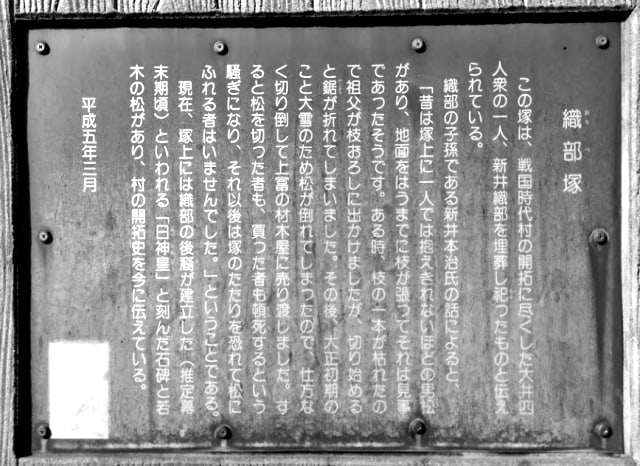 織部塚
おり べ
この塚は、戦国時代村の開拓に尽くした大井四
人衆の一人、新井織部を埋葬し祀つたものと伝え
られている。
織部の子孫である新井本治氏の話によると、
「昔は塚上に一人では抱えきれないほどの男松
があり、地面をはうまでに枝が張つてそれは見事
であったそうです。ある時、枝の一本が枯れたの
で祖父が枝おろしに出かけましたが、切り始める
と鋸が折れてしまいました。その後、大正初期の
こと大雪のため松が倒れてしまったので、仕方な
く切り倒して上富の材木屋に売り渡しました。す
ると松を切った者も、買った者も頓死するという
騒ぎになり、それ以後は塚のたたりを恐れて松に
ふれる者はいませんでした。」ということである。
現在、塚上には織部の後裔が建立した（推定幕
末期頃）といわれる「日神皇」と刻んだ石碑と若
木の松があり、村の開拓史を今に伝えている。
平成五年三月